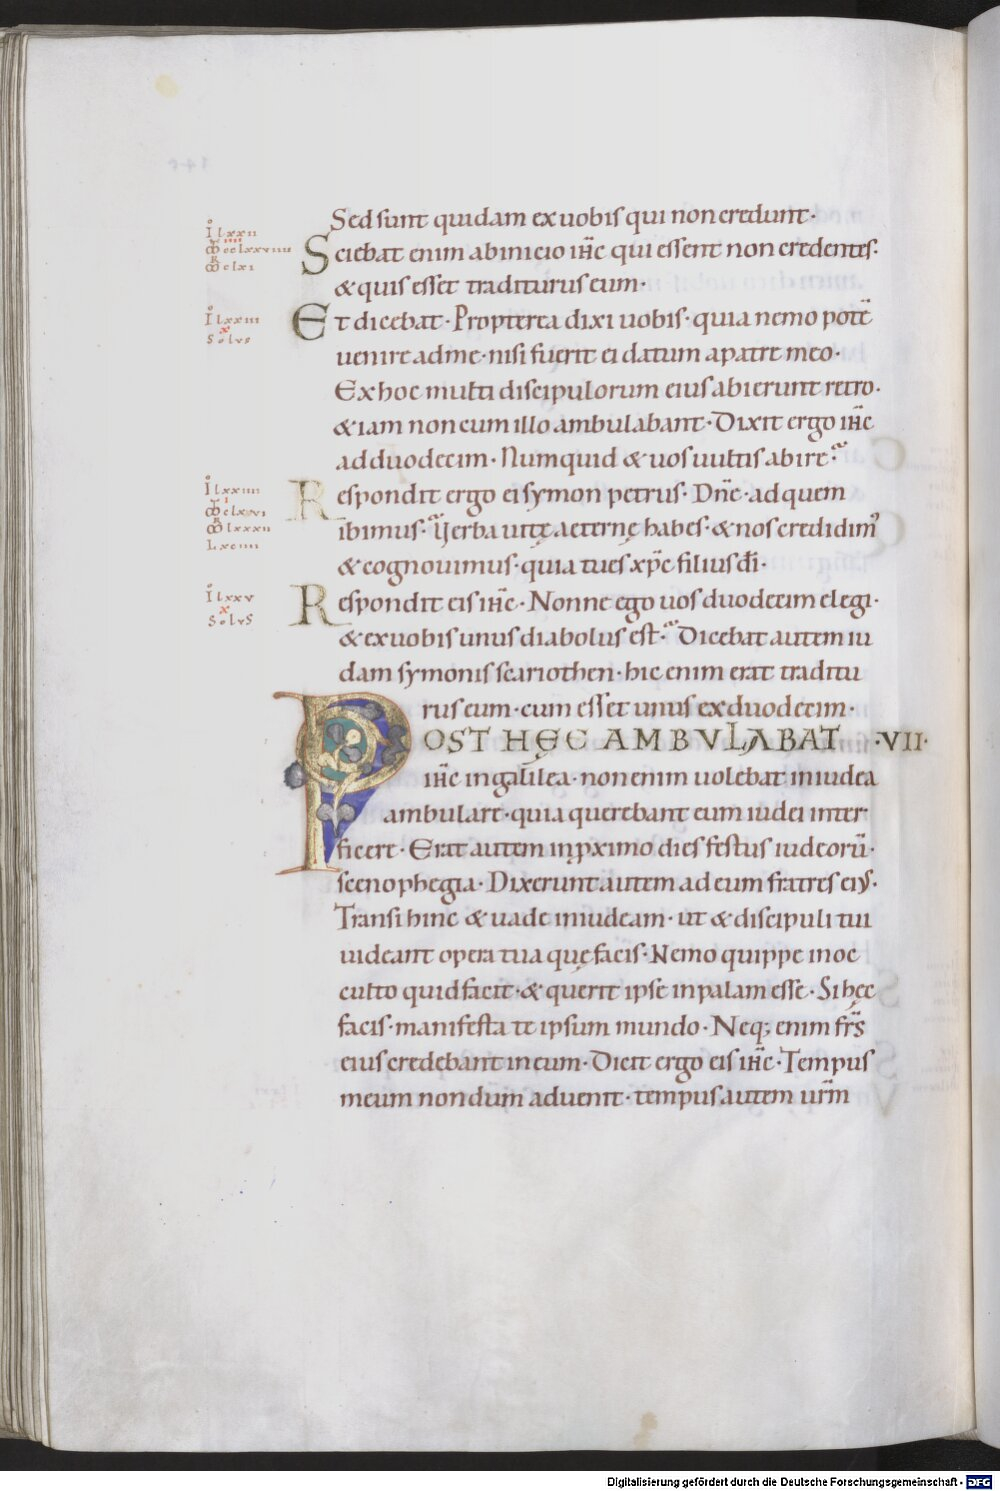 Sed sunt quidam ex uobis qui non credunt·
Sciebat enim ab inicio ih̅c qui essent non credentes·
& quis esset traditurus eum·
Et dicebat· Propterea dixi uobis· quia nemo pote̅
uenire ad me· nisi fuerit ei datum a patre meo·
Ex hoc multi discipulorum eius abierunt retro·
& iam non cum illo ambulabant· Dixit ergo ih̅c
ad duodecim· Numquid & uos uultis abire?
Respondit ergo ei symon petrus· Dn̅e· ad quem
ibimus? Verba uitę aeternę habes· & nos credidim᾿
& cognouimus· quia tu es xp̅c filius di̅·
Respondit eis ih̅c· Nonne ego uos duodecim elegi·
& ex uobis unus diabolus est? Dicebat autem iu
dam symonis scariothen· hic enim erat traditu
rus eum· cum esset unus ex duodecim·
POST HĘC AMBVLABAT ·VII·
ih̅c in galilea· non enim uolebat in iudea
ambulare· quia querebant eum iudei inter
ficere· Erat autem in ꝓximo dies festus iudeoru̅·
scenophegia· Dixerunt autem ad eum fratres eius·
Transi hinc & uade in iudeam· ut & discipuli tui
uideant opera tua quę facis· Nemo quippe in oc
culto quid facit· & querit ipse in palam esse· Si hęc
facis· manifesta te ipsum mundo· Neq; enim fr̅s
eius credebant in eum· Dicit ergo eis ih̅c· Tempus
meum nondum aduenit· tempus autem ur̅m
Ī lxxii
cclxxuiiii
clxi
Ī lxxiii
x
Solus
Ī lxxiiii
lxxxii
Lxxiiii
Ī lxxv
x
SolvS
Digitalisierung gefördert durch die Deutsche Forschungsgemeinschaft - DFG